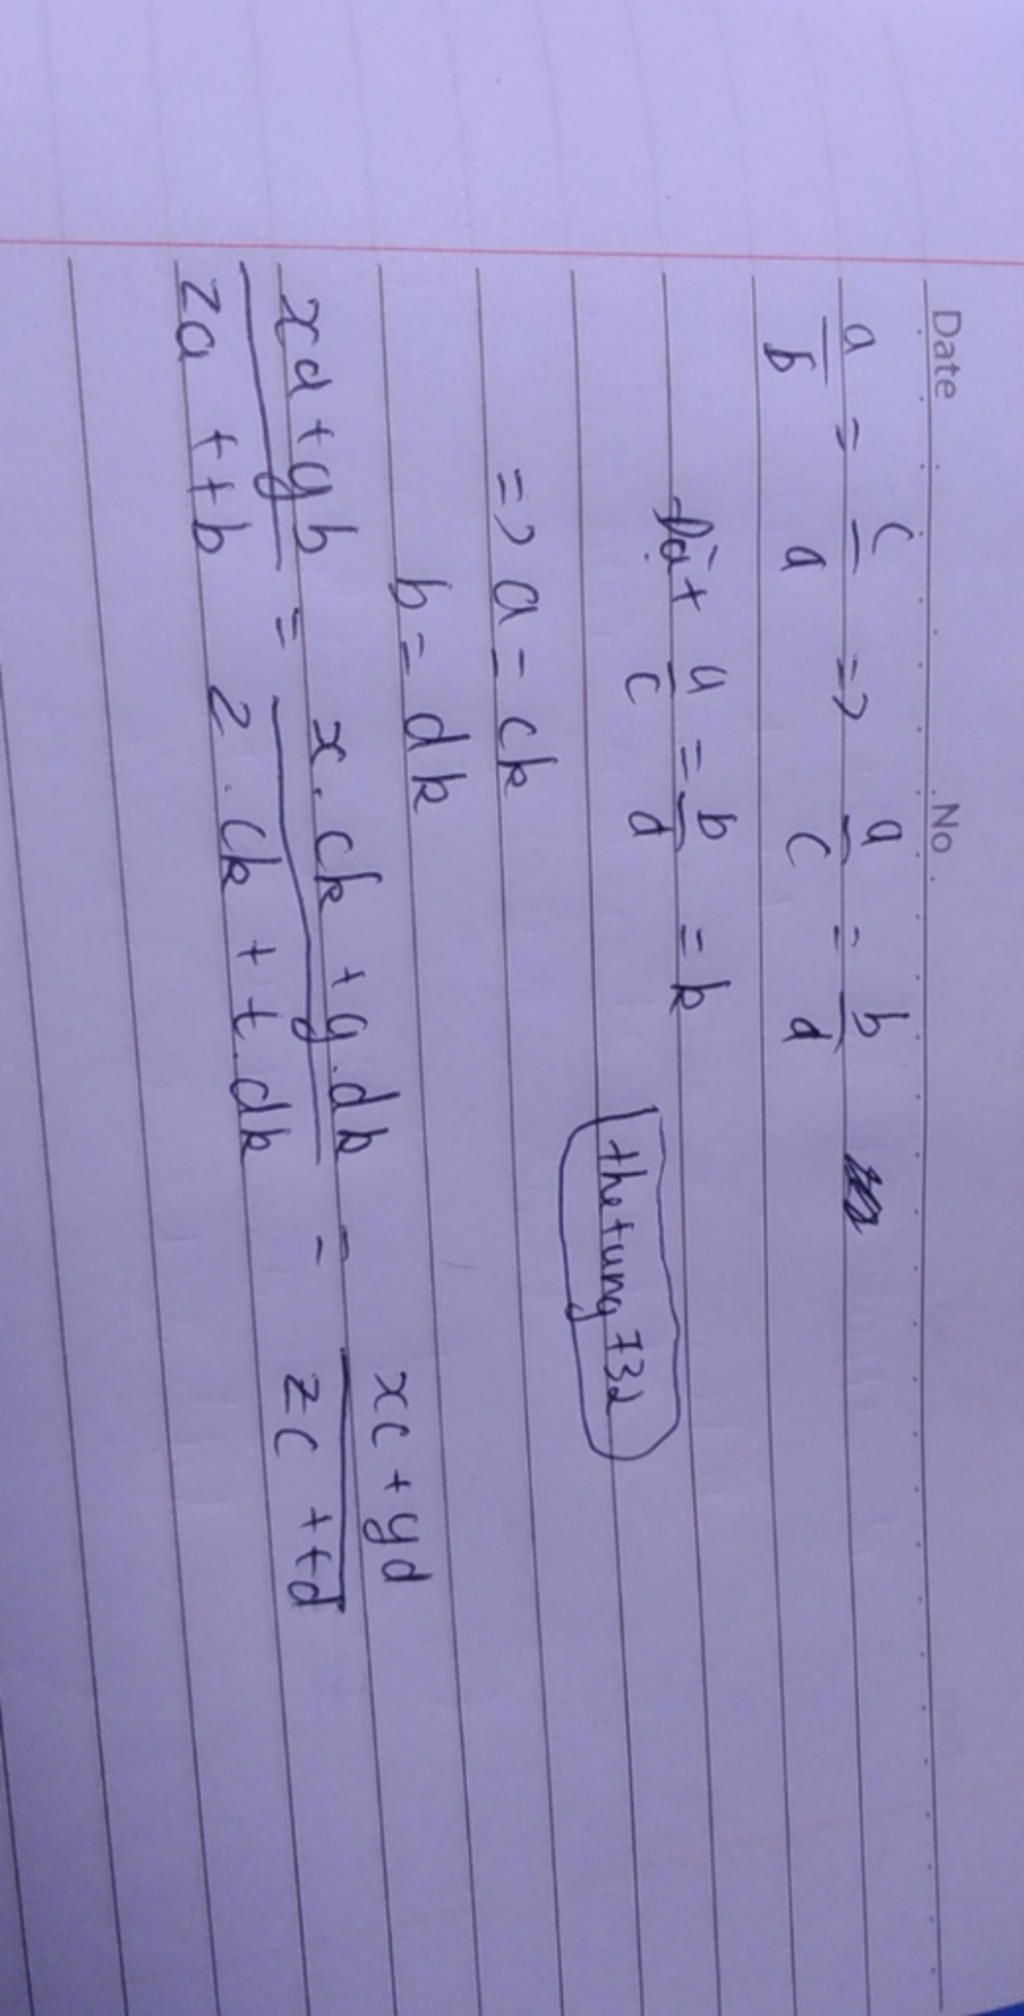 Date No.
a/b = c/d => a/c = b/d
Đặt a/c = b/d = k
thetung732
=> a = ck
b = dk
xa + yb / za + tb = x.ck + y.dk / z.ck + t.dk = xc + yd / zc + td